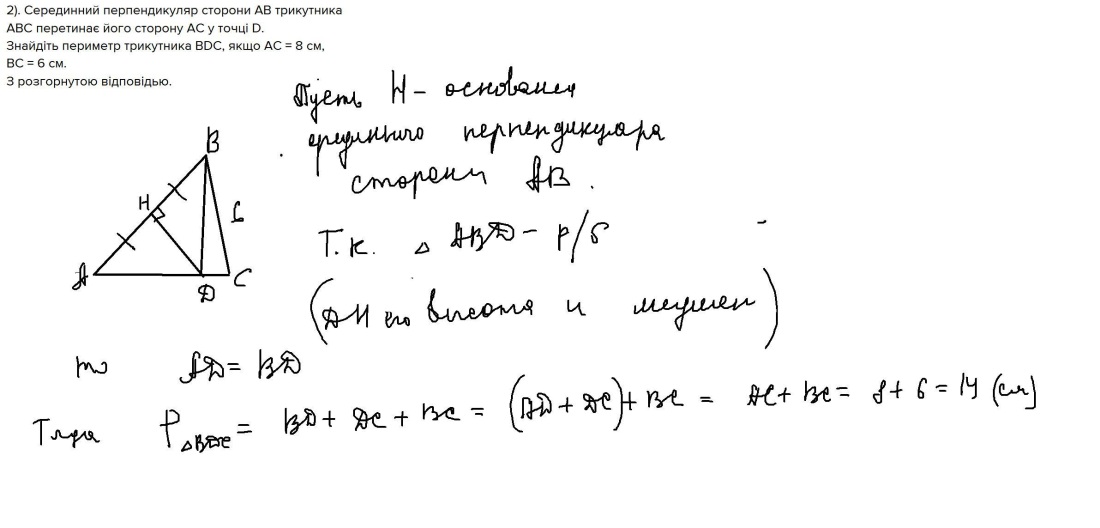 2). Серединний перпендикуляр сторони АВ трикутника
АВС перетинає його сторону АС у точці D.
Знайдіть периметр трикутника BDC, якщо АС = 8 см,
ВС = 6 см.
З розгорнутою відповідью.
Пусть H - основания
срединного перпендикуляра
стороны AB.
B
H
6
A
D
C
Т.к. △ ABD - р/б
(DH его высота и медиан)
то AD = BD
Тогда P△BDC = BD + DC + BC = (AD + DC) + BC = AC + BC = 8 + 6 = 14 (см)